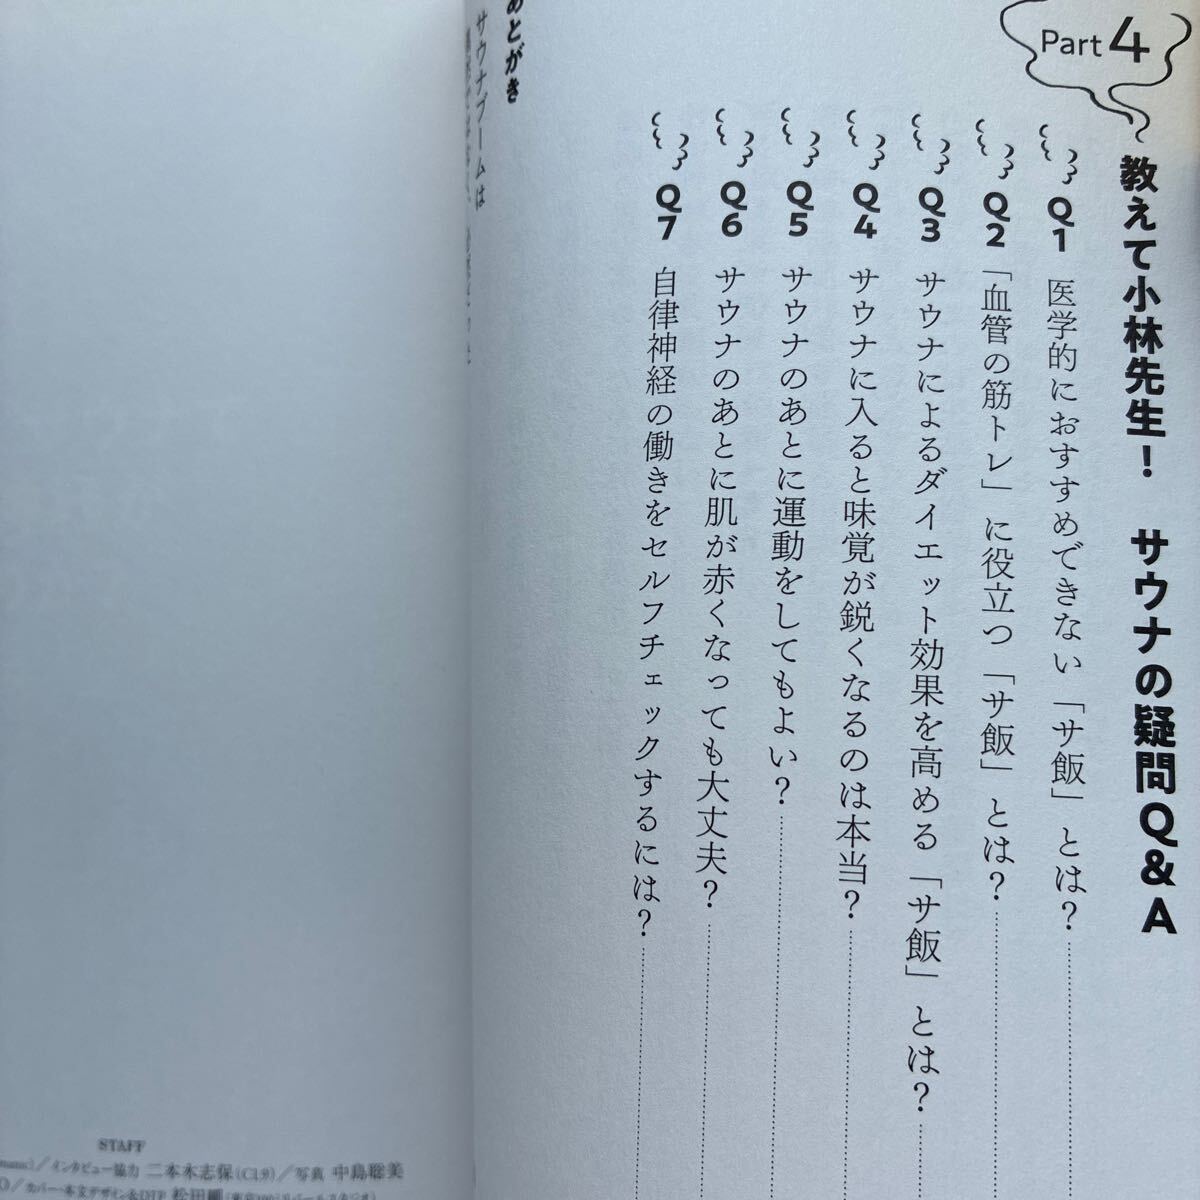 Part 4
教えて小林先生! サウナの疑問Q&A
Q1 医学的におすすめできない「サ飯」とは?
Q2 「血管の筋トレ」に役立つ「サ飯」とは?
Q3 サウナによるダイエット効果を高める「サ飯」とは?
Q4 サウナに入ると味覚が鋭くなるのは本当?
Q5 サウナのあとに運動をしてもよい?
Q6 サウナのあとに肌が赤くなっても大丈夫?
Q7 自律神経の働きをセルフチェックするには?
あとがき
サウナブームは
STAFF
/インタビュー協力 二本木志保(C1.9)/写真 中島聡美
/カバー・本文デザイン&DTP 松田剛